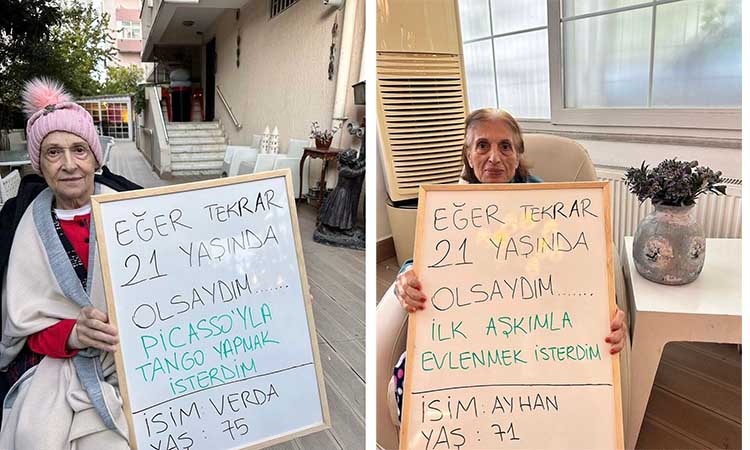 EĞER TEKRAR
21 YAŞINDA
OLSAYDIM.......
PİCASSO'YLA
TANGO YAPMAK
İSTERDİM
İSİM: VERDA
YAŞ : 75
EĞER TEKRAR
21 YAŞINDA
OLSAYDIM.......
İLK AŞKIMLA
EVLENMEK İSTERDİM
İSİM: AYHAN
YAŞ : 71